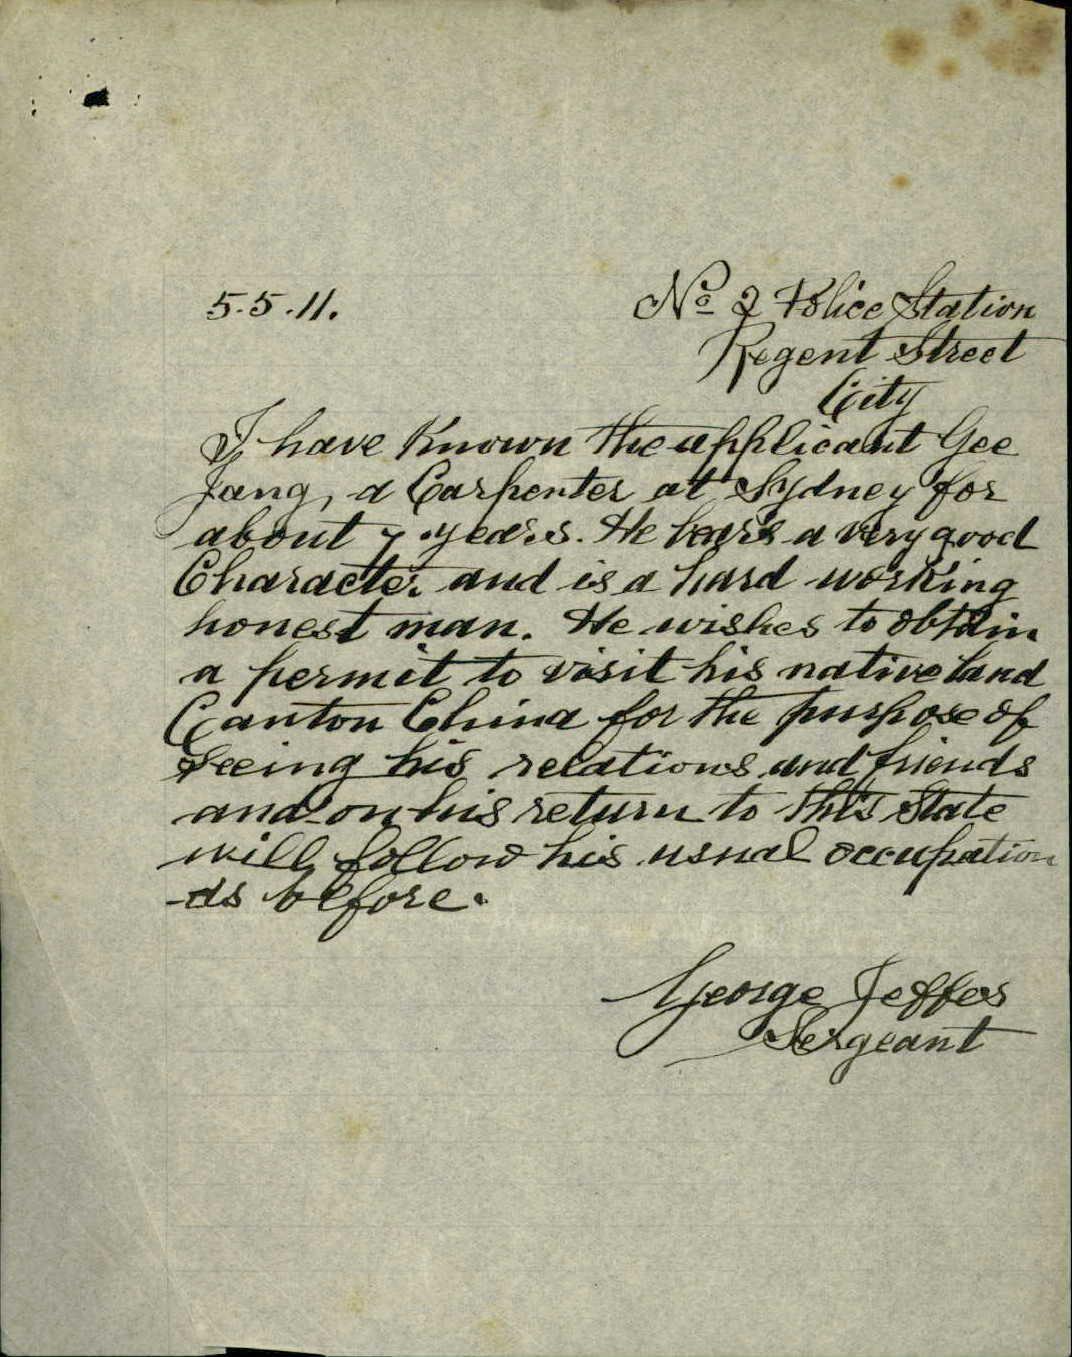 5.5.11. No 2 Police Station
Regent Street
City
I have Known the applicant Gee
Jang, a Carpenter at Sydney for
about 7 years. He bears a very good
Character and is a hard working
honest man. He wishes to obtain
a permit to visit his native land
Canton China for the purpose of
seeing his relations and friends
and on his return to this State
will follow his usual occupation
as before.
George Jeffes
Sergeant